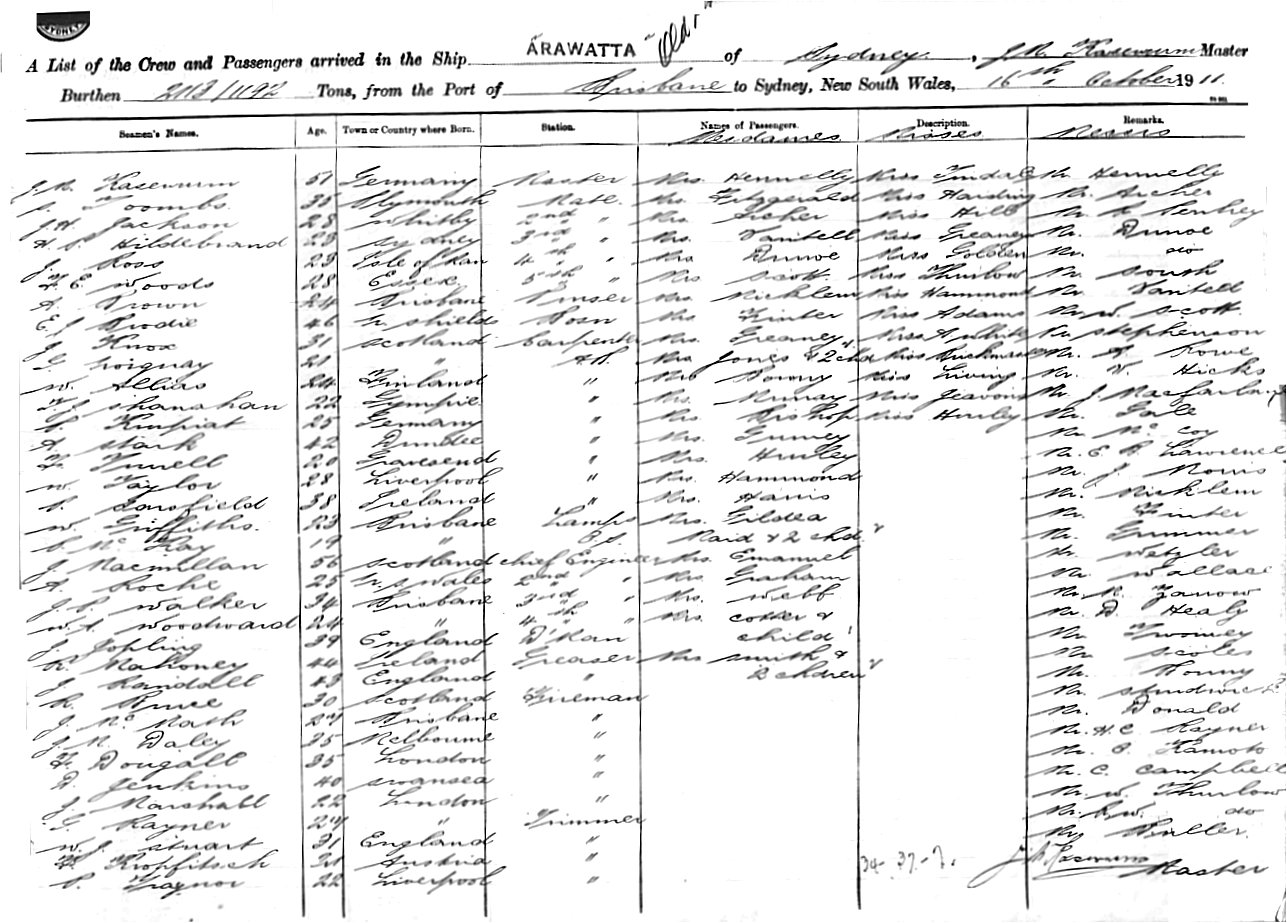 SYDNEY
ARAWATTA
A List of the Crew and Passengers arrived in the Ship of Sydney, J.B. Kasewurm Master
Burthen 2113/1192 Tons, from the Port of Brisbane to Sydney, New South Wales, 16th October 1911.
Seamen's Names. Age. Town or Country where Born. Station. Names of Passengers. Description. Remarks.
Mesdames Misses Messrs
Kasewurm 51 Germany Master Mrs. Hennelly Miss Tindal Mr Hennelly
Toombs 35 Plymouth Mate. Mrs. Fitzgerald Miss Harding Mr. Archer
J.H. Jackson 28 Whitby 2nd " Mrs Archer Miss Hill Mr
Hildebrand 23 Sydney 3rd " Mrs. Vantell Miss Greaney Mr. Dunoe
J. Ross 23 Isle of Man 4th " Mrs Dunoe Miss Golden Mr. do
F.E. Woods 28 Essex 5th " Mrs Scott Miss Thurlow Mr South
A. Brown 24 Brisbane Mrs. Micklem Miss Hammond Mr. Vantell
E.J. Brodie 46 N. Shields Bosn Mrs Finter Miss Adams Mr. W. Scott
J. Knox 31 Scotland Carpenter Mrs. Greaney Miss A. White Mr Stephenson
21 " A.B. Mrs Jones & 2 chd Miss Mr. A. Rowe
W. 24 Finland " Mrs Miss Living Mr. V. Hicks
Shanahan 22 Gympie " Mrs. Murray Miss Jeavons Mr J. Macfarlane
25 Germany " Mrs Bishop Miss Hurley Mr. Gale
A. Stark 42 Dundee " Mrs. Mr. McCoy
20 Gravesend " Mrs. Hurley Mr. E.B. Lawrence
W. Taylor 28 Liverpool " Mrs. Hammond Mr J. Morris
Sarsfield 38 Ireland " Mrs. Harris Mr. Micklem
W. Griffiths. 23 Brisbane Lamps Mrs. Gildea Mr. Finter
McKay 19 " O.S. Maid & 2 chd. Mr. Gummer
J. Macmillan 56 Scotland Chief Engineer Mrs. Emanuel Mr Wetzler
A. Roche 25 N.S. Wales 2nd " Mrs. Graham Mr. Wallace
J.P. Walker 34 Brisbane 3rd " Mrs. Webb Mr. M. Zanow
W.A. Woodward 24 " 4th " Mrs. Cotter & Mr. D. Healy
J. Jopling 39 England D'Man child Mr Twomey
Mahoney 44 Ireland Greaser Mrs Smith & Mr Scoles
J. Randall 43 England " 2 chdren Mr.
R. Bruce 30 Scotland Fireman Mr.
J. McMath 27 Brisbane " Mr. Donald
J.M. Daley 25 Melbourne " Mr. H.C. Rayner
F. Dougall 35 London " Mr. Kamoto
D. Jenkins 40 Swansea " Mr. C. Campbell
J. Marshall 22 London " Mr. W. Thurlow
Rayner 27 " Trimmer Mr. R.W. do
W.J. Stuart 31 England " Mr Buller.
Kropfitsch 21 Austria "
P. Traynor 22 Liverpool " 34-37-7. J.B. Kasewurm Master